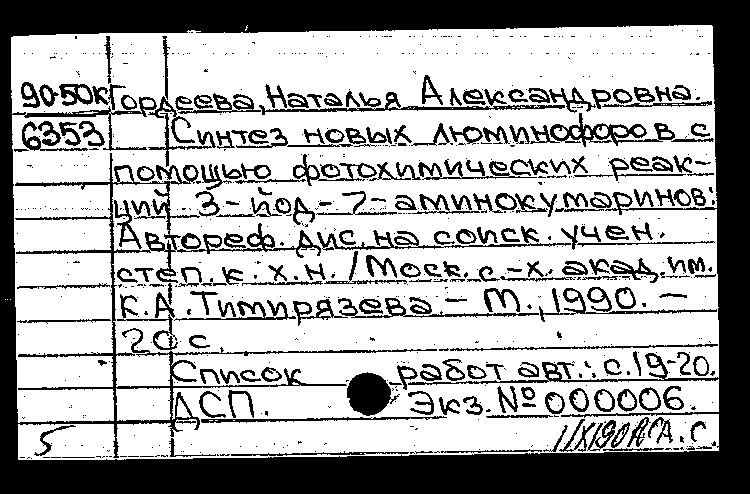 90-50к Гордеева, Наталья Александровна.
6353 Синтез новых люминофоров с
помощью фотохимических реак-
ций 3-йод-7-аминокумаринов:
Автореф. дис. на соиск. учен.
степ. к. х. н. / Моск. с.-х. акад. им.
К. А. Тимирязева. - М., 1990. -
20 с.
Список работ авт.: с. 19-20.
ДСП. Экз. № 000006.
5